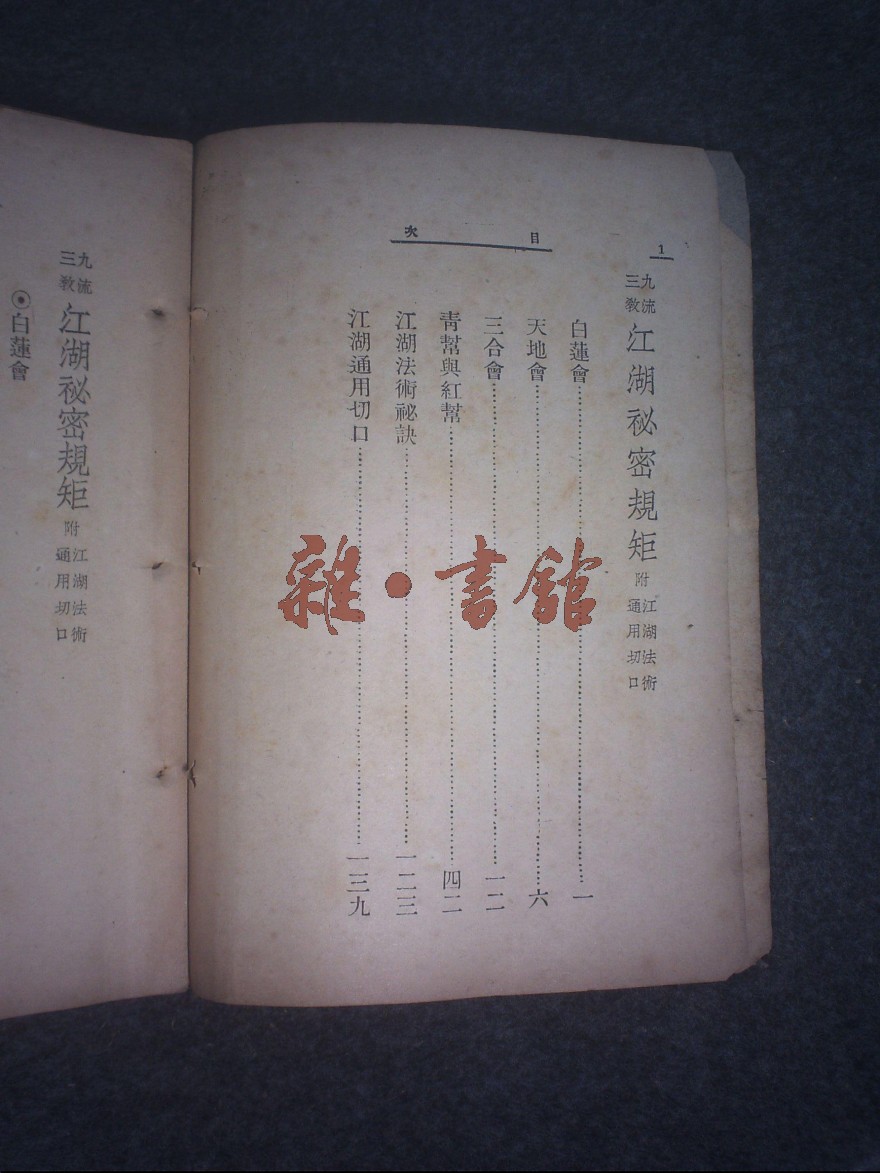 目次
1
三教九流 江湖祕密規矩 附江湖法術通用切口
白蓮會……一
天地會……六
三合會……一二
青幫與紅幫……四二
江湖法術祕訣……一二三
江湖通用切口……一三九
三教九流 江湖祕密規矩 附江湖法術通用切口
◉白蓮會
雜·書館